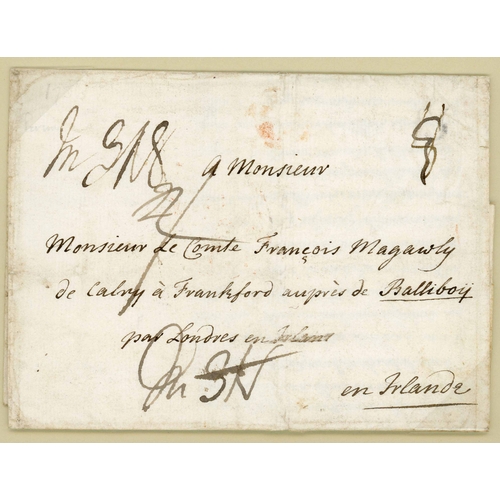 In 3N8
a Monsieur
Monsieur Le Comte François Magawly
de Calry à Frankford auprès de Balliboÿ
par Londres en Irlan
In 3N
en Irlande